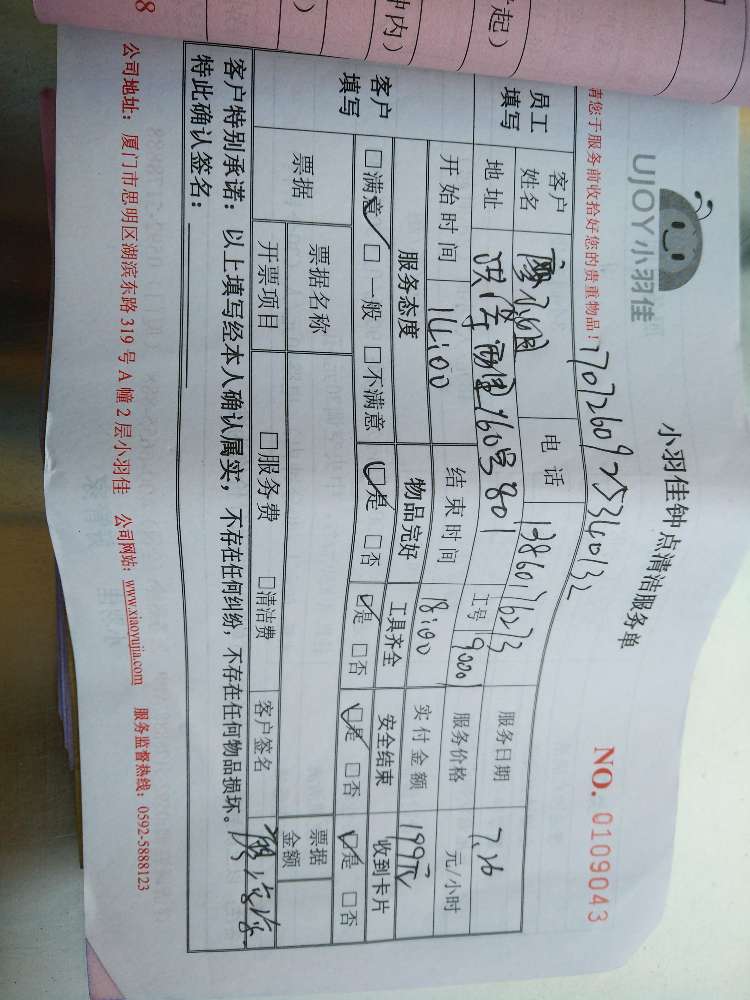 起）
钟内）
）
8
UJOY小羽佳
小羽佳钟点清洁服务单
NO. 0109043
请您于服务前收拾好您的贵重物品！
员工填写
客户姓名
电话
服务日期 7.26
地址
160号801
工号 9000
服务价格 元/小时
开始时间 14:00
结束时间 18:00
实付金额 199元
客户填写
服务态度 物品完好 工具齐全 安全结束 收到卡片
□满意 □一般 □不满意 □是 □否 □是 □否 □是 □否 □是 □否
票据
票据名称
票据金额
开票项目 □服务费 □清洁费 客户签名
客户特别承诺：以上填写经本人确认属实，不存在任何纠纷，不存在任何物品损坏。
特此确认签名：
公司地址：厦门市思明区湖滨东路319号A幢2层小羽佳 公司网站：www.xiaoyujia.com 服务监督热线：0592-5888123